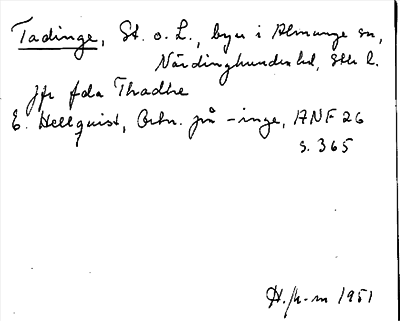 Tadinge, St. o. L., byar i Almunge sn,
Närdinghundra hd, Sthlms l.
Jfr fda Thadhe
E. Hellquist, Ortn. på -inge, ANF 26
s. 365
H. /k-m 1951